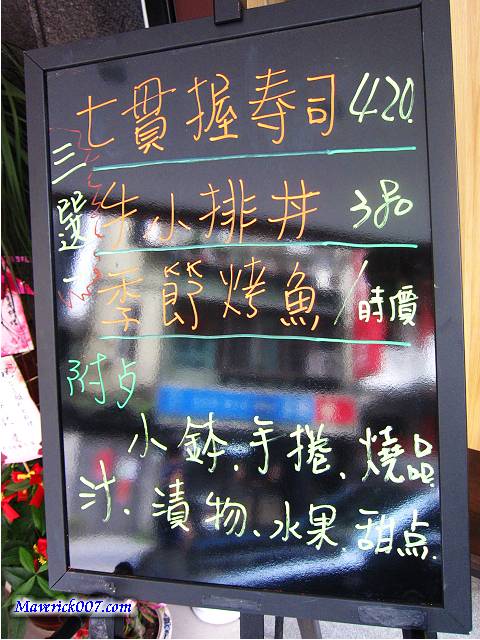 七貫握寿司 420.
三選一
牛小排丼
季節烤魚/時價
附点
小鉢、手捲、燒品
汁、漬物、水果、甜点.
Maverick007.com